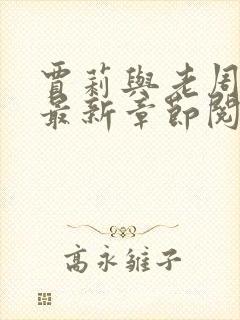 賈莉與老周
最新章節閱
高永雒子